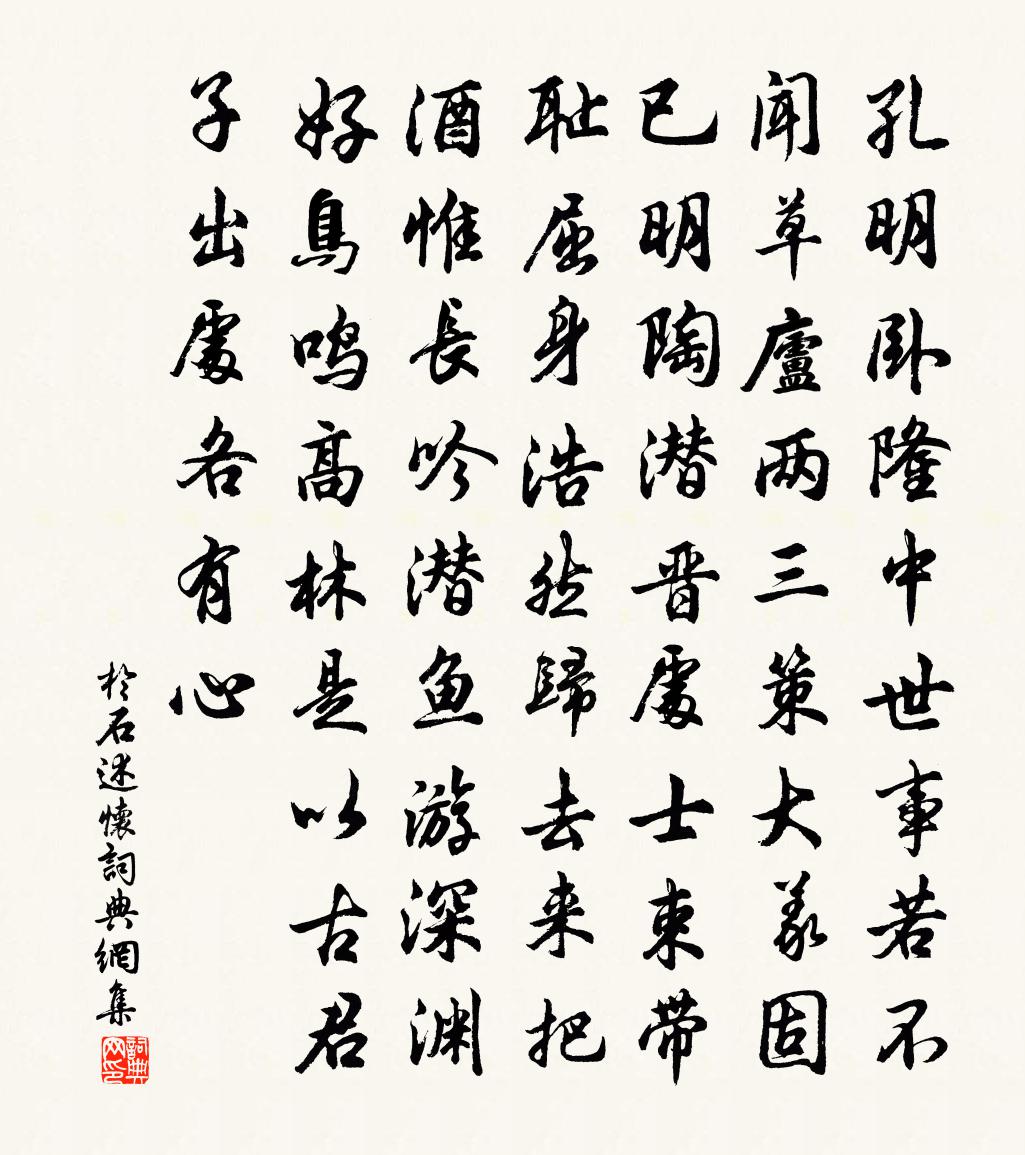 孔明卧隆中世事若不
闻草廬两三策大義固
已明陶潜晋處士束带
耻屈身浩然歸去来把
酒惟長吟潜鱼游深渊
好鳥鸣高林是以古君
子出處各有心
於石述懷詞典網集
詞典网印